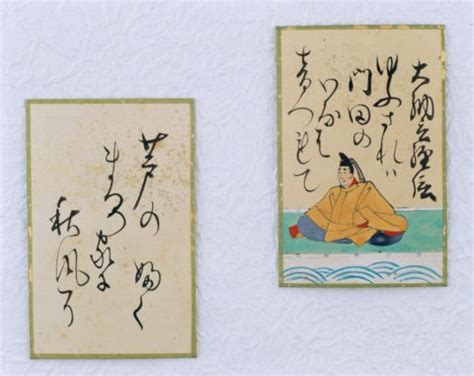 大納言経信
ゆふされハ
門田の
いなは
音つれて
芦の
まろ家に
秋風そ
婦く